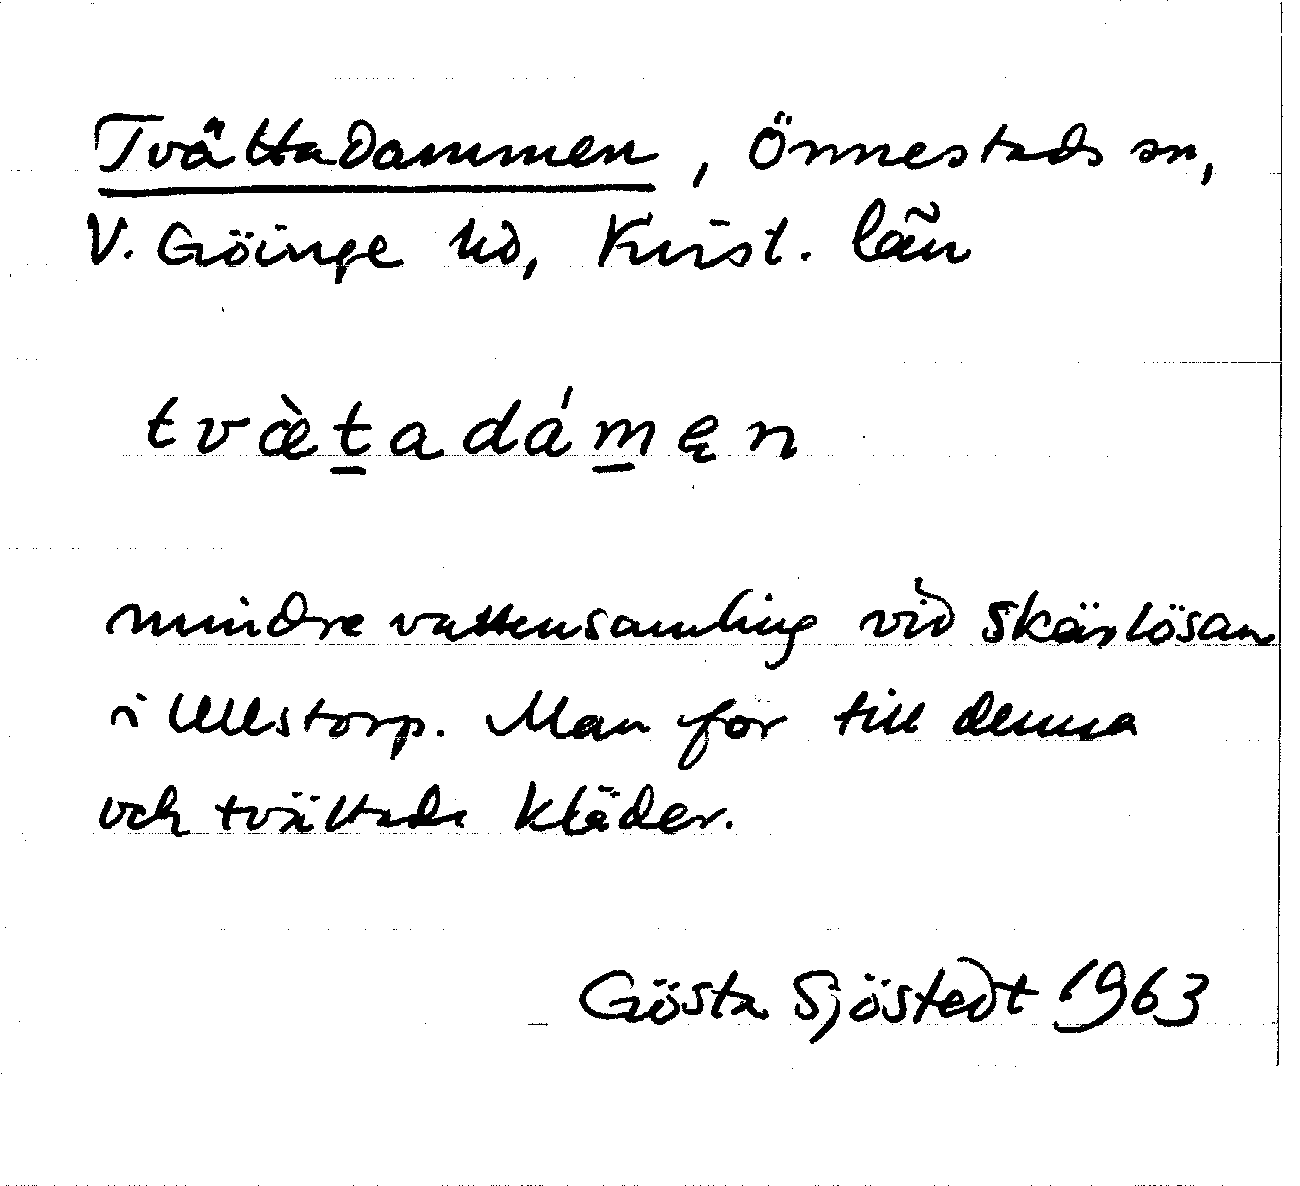 Tvättadammen, Önnestads sn,
V. Göinge hd, Krist. län
tvæ̀ṯadám̱ęn
mindre vattensamling vid Skärlösan
i Ullstorp. Man for till denna
och tvättade kläder.
Gösta Sjöstedt 1963